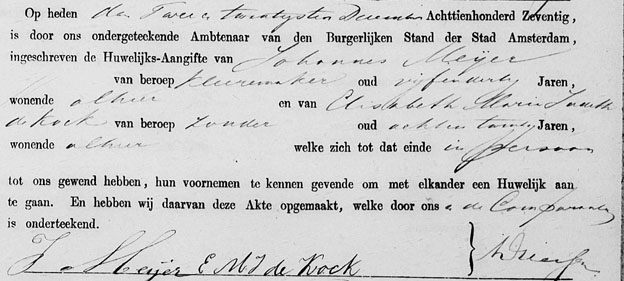 Op heden den Twee en twintigsten December Achttienhonderd Zeventig,
is door ons ondergeteekende Ambtenaar van den Burgerlijken Stand der Stad Amsterdam,
ingeschreven de Huwelijks-Aangifte van Johannes Meijer
van beroep Kleermaker oud vijfendertig Jaren,
wonende alhier en van Elisabeth Maria Judith
de Kock van beroep Zonder oud achtentwintig Jaren,
wonende alhier welke zich tot dat einde in persoon
tot ons gewend hebben, hun voornemen te kennen gevende om met elkander een Huwelijk aan
te gaan. En hebben wij daarvan deze Akte opgemaakt, welke door ons
is onderteekend.
J Meijer E M J de Kock